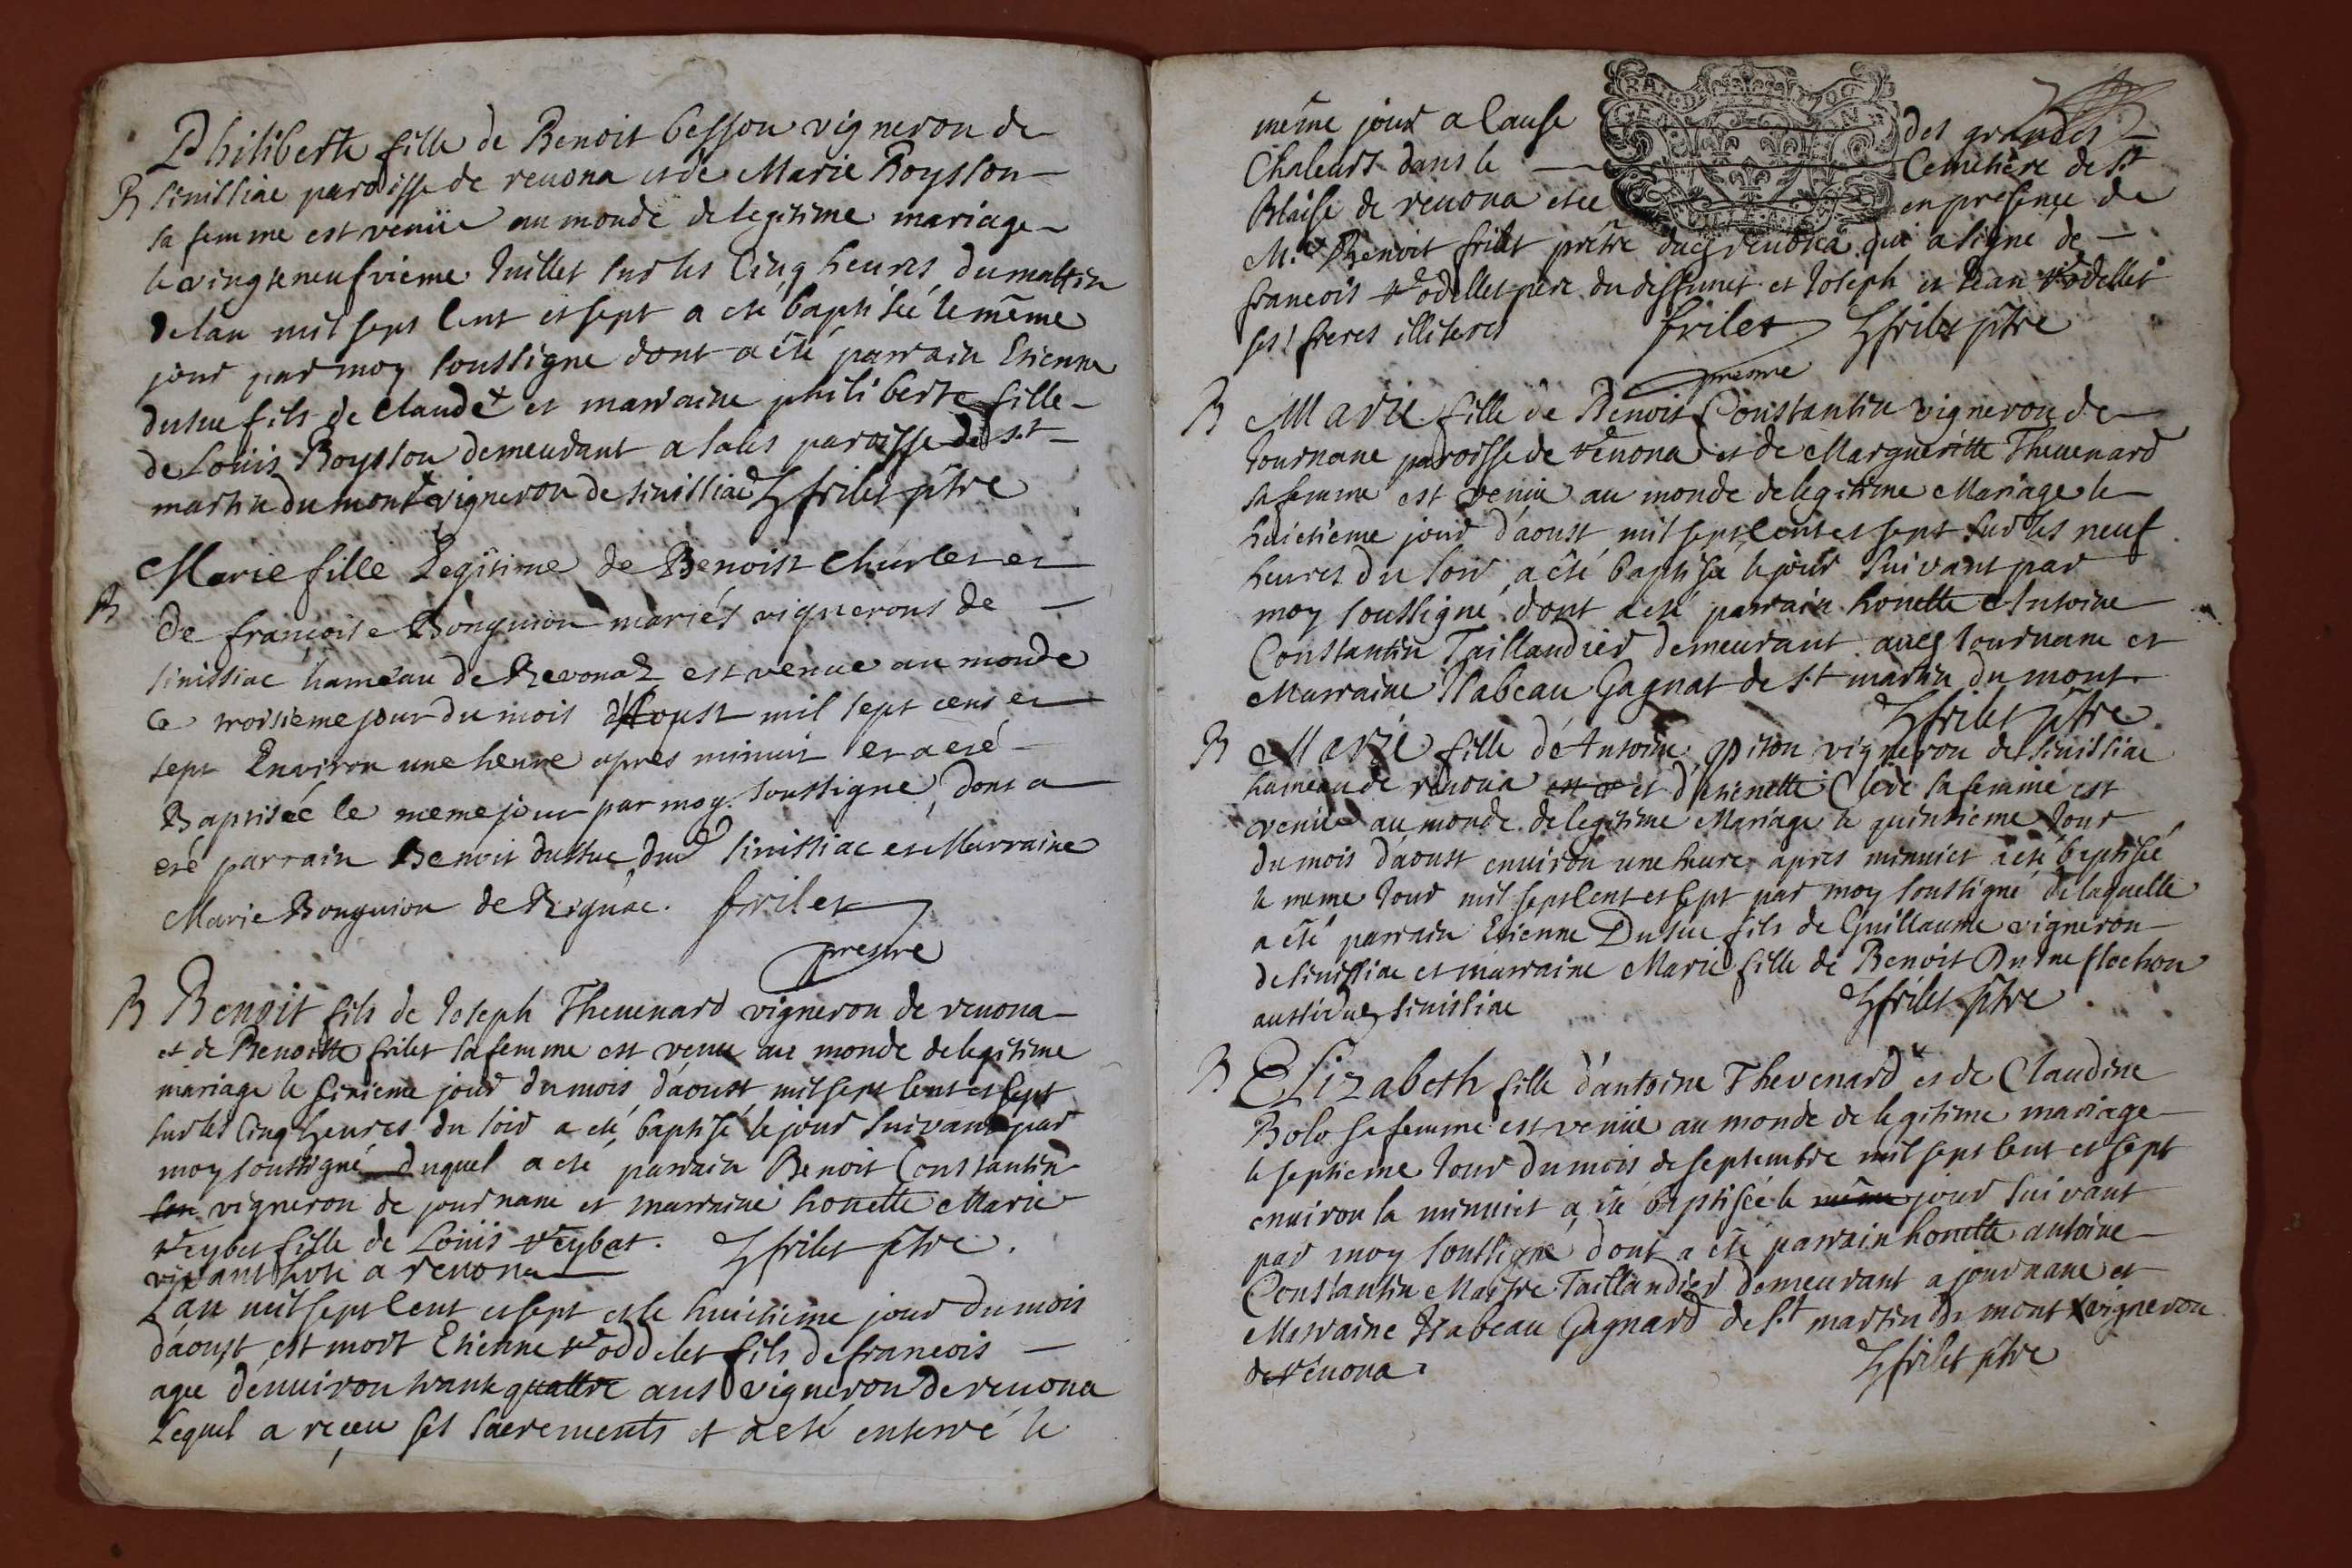 Philiberte fille de Benoit besson vigneron de
B sinissiac paroisse de reuona et de Marie Boysson
sa femme est venüe au monde de legitime mariage
le vingteneufvieme Juillet sur les Cinq heures du mattin
de lan mil sept Cent et sept a eté baptisée le même
jour par moy soussigne dont a été parrain Etienne
dusuc fils de Claude + et marraine philiberte fille
de Loüis Boysson demeurant a salis paroisse de st
martin du mont + vigneron de sinissiac frilet ptre
Marie fille Legitime de Benoist Churlet et
B de françoise Bonguion mariés vignerons de
sinissiac hameau de Revonaz est venue au monde
Ce troisieme jour du mois d'Aoust mil sept cens et
sept Environ une heure apres minuit et a eté
Baptisée le meme jour par moy soussigne, dont a
eté parrain Benoit dussuc dud sinissiac et Marraine
Marie Bonguion de Rignac. frilet
prestre
B Benoit fils de Joseph Theuenard vigneron de reuona
et de Benoitte frilet sa femme est venu au monde de legitime
mariage le sixieme jour du mois d'aoust mil sept Cent et sept
sur les Cinq heures du soir a eté baptisé le jour suivant par
moy soussigné duquel a eté parrain Benoit Constantin
vigneron de journane et marraine honette Marie
Veybet fille de Loüis Veybat. frilet ptre.
vivant hote a reuona
L'an mil sept Cent et sept et le huictieme jour du mois
d'aoust est mort Etienne Voddelet fils de francois
age d'enuiron trante quattre ans vigneron de reuona
Lequel a receu ses sacrements et a eté enterré le
même jour a Cause des grandes
Chaleurs dans le Cemetière de st
Blaise de reuona et ce en presençe de
M.e Benoit frilet prêtre dud reuona qui a signé de
francois Vodellet pere du deffunct et Joseph et Jean Vodellet
ses freres illiteres frilet frilet ptre
prestre
B Marie fille de Benoit Constantin vigneron de
Journane paroisse de Reuona et de Margueritte Theuenard
sa femme est venüe au monde de legitime Mariage le
huictieme jour d'aoust mil sept Cent et sept sur les neuf
heures du soir a été baptisée le jour suivant par
moy soussigné dont a eté parrain honette Antoine
Constantin Taillandier demeurant aud Journane et
Marraine Isabeau Gagnat de st martin du mont
frilet ptre
B Marie fille d'Antoine Piron vigneron de sinissiac
hameau de reuona et d'Etienette Clere sa femme est
venüe au monde de legitime Mariage le quinsieme Jour
du mois d'aoust enuiron une heure apres minuict a eté baptisée
le meme Jour mil sept Cent et sept par moy soussigné de laquelle
a été parrain Etienne Dusuc fils de Guillaume vigneron
de sinissiac et marraine Marie fille de Benoit Dusuc flochon
aussi dud sinissiac frilet ptre
B Elizabeth fille d'antoine Thevenard + et de Claudine
Bolo sa femme est venüe au monde de legitime mariage
le septieme Jour du mois de septembre mil sept Cent et sept
enuiron la minuict a été baptisée le jour suivant
par moy soussigné dont a eté parrain honette antoine
Constantin Maistre Taillandier demeurant a journane et
Marraine Isabeau Gagnard de st martin du mont + vigneron
de Reuona. frilet ptre